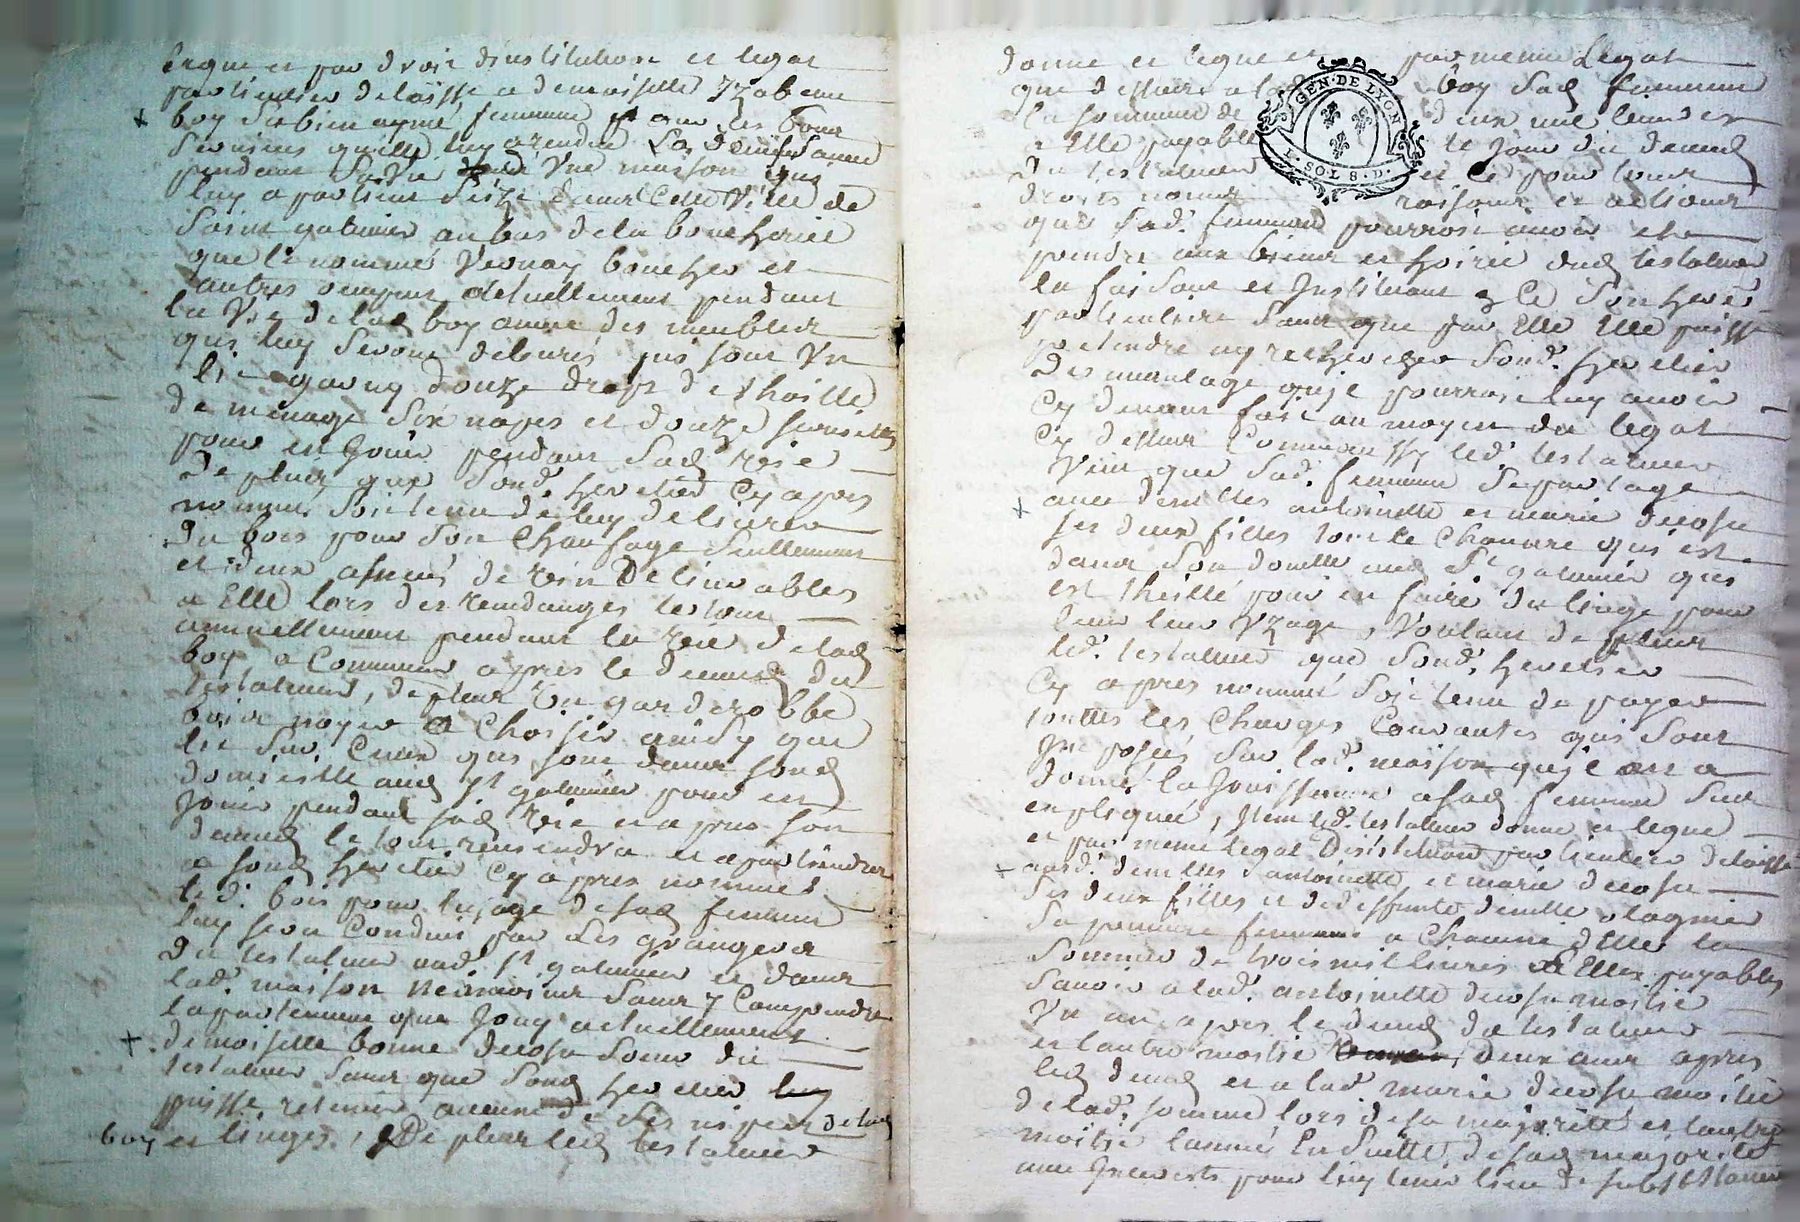 legue et par droit d'institution et legat
particulier delaisse a demoiselle Yzabeau
boy sa bien aymé femme et pour les bons
services quelle luy a rendue
pendant sa vie une maison qui
luy apartient size dans cette Ville de
Saint galmier au bas de la boucherie
que le nommé Vernay boucher et
autres occupent actuellement pendant
la Vie de lad boy avec des meubles
qui luy seront delivrés un
lit garny douze draps de thoille
de menage six napes et douze serviettes
pour en jouir pendant sad vie
De plus que sond. heretier cy apres
nommé soit tenu de luy delivrer
du bois pour son chaufage seullement
et deux asnees de vin delivrables
a Elle lors des vendanges le tout
annuellement pendant la vie de lad
boy a commencer apres le deceds du
testateur, de plus un garderobbe
bois noyer a choisir ainsy que
lit sur ceux qui sont dans sond
domicille aud St galmier pour en
jouir pendant sad vie et apres son
deceds le tout reviendra et apartiendra
a sond heretier cy apres nommé
led. bois pour l'uzage de sad femme
luy sera conduit par les grangers
du testateur aud. St galmier et dans
lad. maison sans y comprendre
l'apartement que jouy actuellement
demoiselle bonne decosu soeur du
testateur sans que sond heretier luy
puisse retenir aucune de ses nipes de lad
boy et linges, De plus led testateur
donne et legue et par meme Legat
que dessus a lad boy sad femme
la somme de deux mil livres
a Elle payable le jour du deceds
du testateur et ce pour tous
droits noms raisons et actions
que sad. femme pourroit avoir et
prendre aux biens et hoirie dud testateur
la faisant et instituant en ce son heretiere
particuliere sans que par Elle Elle puisse
pretendre ny rechercher sond. heretier
Des avantage qu'je pourrois luy avoir
cy devant fait au moyen du legat
cy dessus Comme aussy led. testateur
Veut que sad. femme separtage
avec demlles antoinette et marie decosu
ses deux filles tout le chanvre qui est
dans son domille aud St galmier qui
est theillé pour en faire du linge pour
leur uzage, Voulant de plus
led. testateur que sond. heretier
cy apres nommé soit tenu de payer
touttes les charges Courantes qui sont
Imposés sur lad. maison qu'jl en a
donné la jouissance a sad femme sus
expliquée, Item led. testateur donne et legue
et par meme legat D'institution particuliere delaisse
ausd. demlles antoinette et marie decosu
ses deux filles et de deffunte demlle
sa premiere femme a chacune d'Elle la
somme de trois mil livres a Elles payables
Savoir a lad. antoinette decosu moitié
Un an apres le deceds du testateur
et l'autre moitié deux ans apres
led deceds et a lad marie decosu moitié
de lad. somme lors de sa majorité et l'autre
moitié l'année Ensuitte de sad majorité